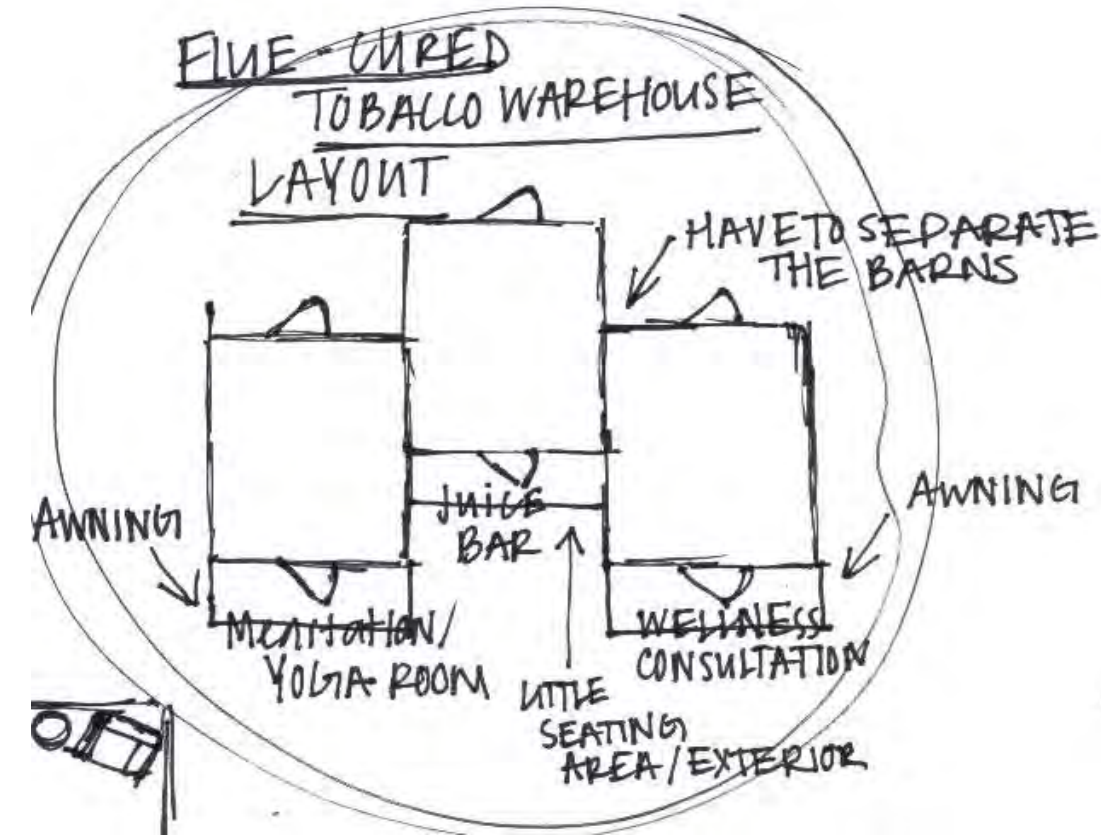 FLUE-CURED
TOBACCO WAREHOUSE
LAYOUT
HAVE TO SEPARATE
THE BARNS
AWNING
AWNING
JUICE
BAR
Meditation/
YOGA ROOM
WELLNESS
CONSULTATION
LITTLE
SEATING
AREA/EXTERIOR